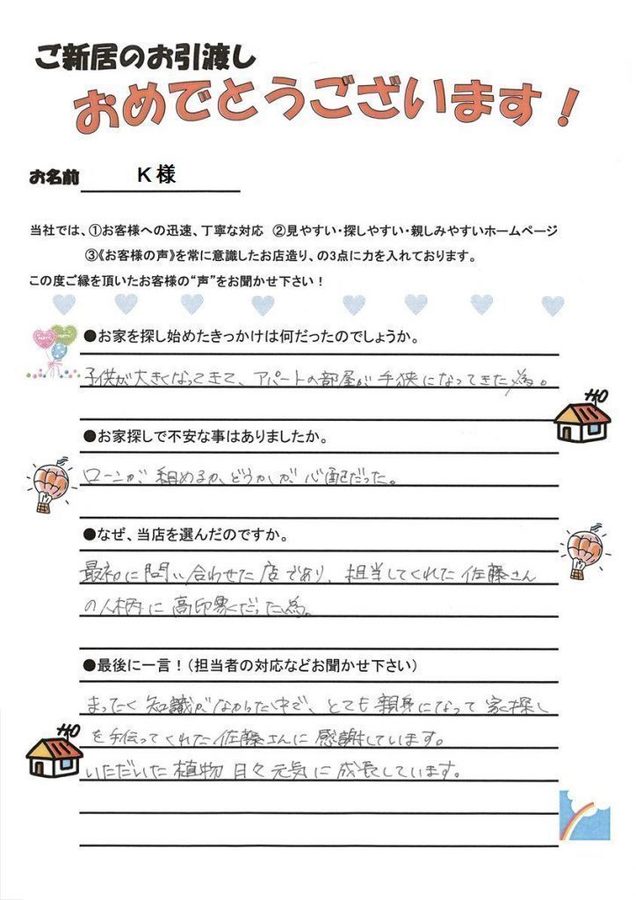 ご新居のお引渡し
おめでとうございます！
お名前 K様
当社では、①お客様への迅速、丁寧な対応 ②見やすい・探しやすい・親しみやすいホームページ
③《お客様の声》を常に意識したお店造り、の3点に力を入れております。
この度ご縁を頂いたお客様の“声”をお聞かせ下さい！
●お家を探し始めたきっかけは何だったのでしょうか。
子供が大きくなってきて、アパートの部屋が手狭になってきた為。
●お家探しで不安な事はありましたか。
ローンが組めるか、どうかが心配だった。
●なぜ、当店を選んだのですか。
最初に問い合わせた店であり、担当してくれた佐藤さん
の人柄に高印象だった為。
●最後に一言！（担当者の対応などお聞かせ下さい）
まったく知識がなかった中で、とても親身になって家探し
を手伝ってくれた佐藤さんに感謝しています。
いただいた植物日々元気に成長しています。